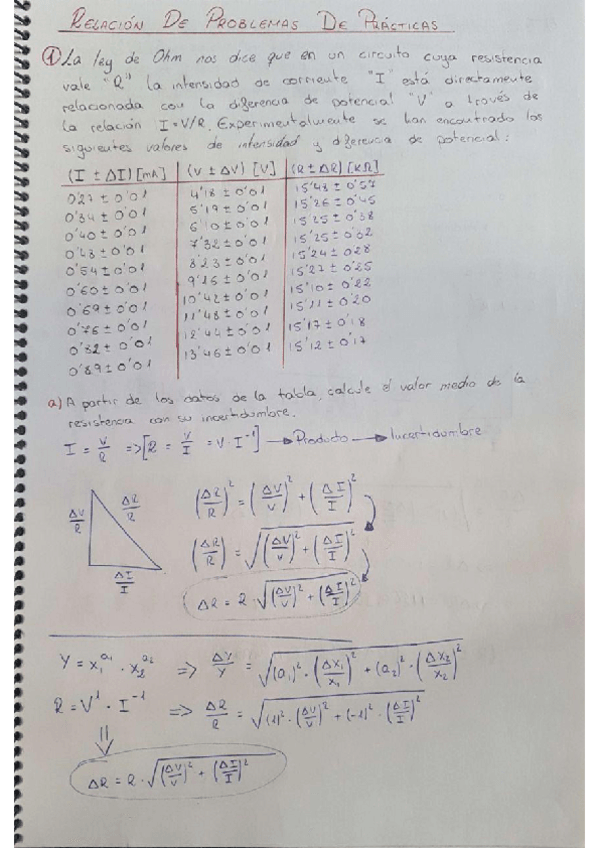 RELACIÓN DE PROBLEMAS DE PRÁCTICAS
① La ley de Ohm nos dice que en un circuito cuya resistencia
vale "R" la intensidad de corriente "I" está directamente
relacionada con la diferencia de potencial "V" a través de
la relación I=V/R. Experimentalmente se han encontrado los
siguientes valores de intensidad y diferencia de potencial:
(I ± ΔI) [mA] (V ± ΔV) [V] (R ± ΔR) [kΩ]
0'27 ± 0'01 4'18 ± 0'01 15'48 ± 0'57
0'34 ± 0'01 5'19 ± 0'01 15'26 ± 0'45
0'40 ± 0'01 6'10 ± 0'01 15'25 ± 0'38
0'48 ± 0'01 7'32 ± 0'01 15'25 ± 0'32
0'54 ± 0'01 8'23 ± 0'01 15'24 ± 0'28
0'60 ± 0'01 9'16 ± 0'01 15'27 ± 0'25
0'69 ± 0'01 10'42 ± 0'01 15'10 ± 0'22
0'76 ± 0'01 11'48 ± 0'01 15'11 ± 0'20
0'82 ± 0'01 12'44 ± 0'01 15'17 ± 0'18
0'89 ± 0'01 13'46 ± 0'01 15'12 ± 0'17
a) A partir de los datos de la tabla, calcule el valor medio de la
resistencia con su incertidumbre.
I = V/R => [R = V/I = V · I⁻¹] → Producto → Incertidumbre
ΔV/R ΔR/R (ΔR/R)² = (ΔV/V)² + (ΔI/I)²
(ΔR/R) = √((ΔV/V)² + (ΔI/I)²)
ΔI/I
ΔR = R · √((ΔV/V)² + (ΔI/I)²)
Y = x₁^a₁ · x₂^a₂ => ΔY/Y = √((a₁)² · (Δx₁/x₁)² + (a₂)² · (Δx₂/x₂)²)
R = V¹ · I⁻¹ => ΔR/R = √((1)² · (ΔV/V)² + (-1)² · (ΔI/I)²)
⇓
ΔR = R · √((ΔV/V)² + (ΔI/I)²)